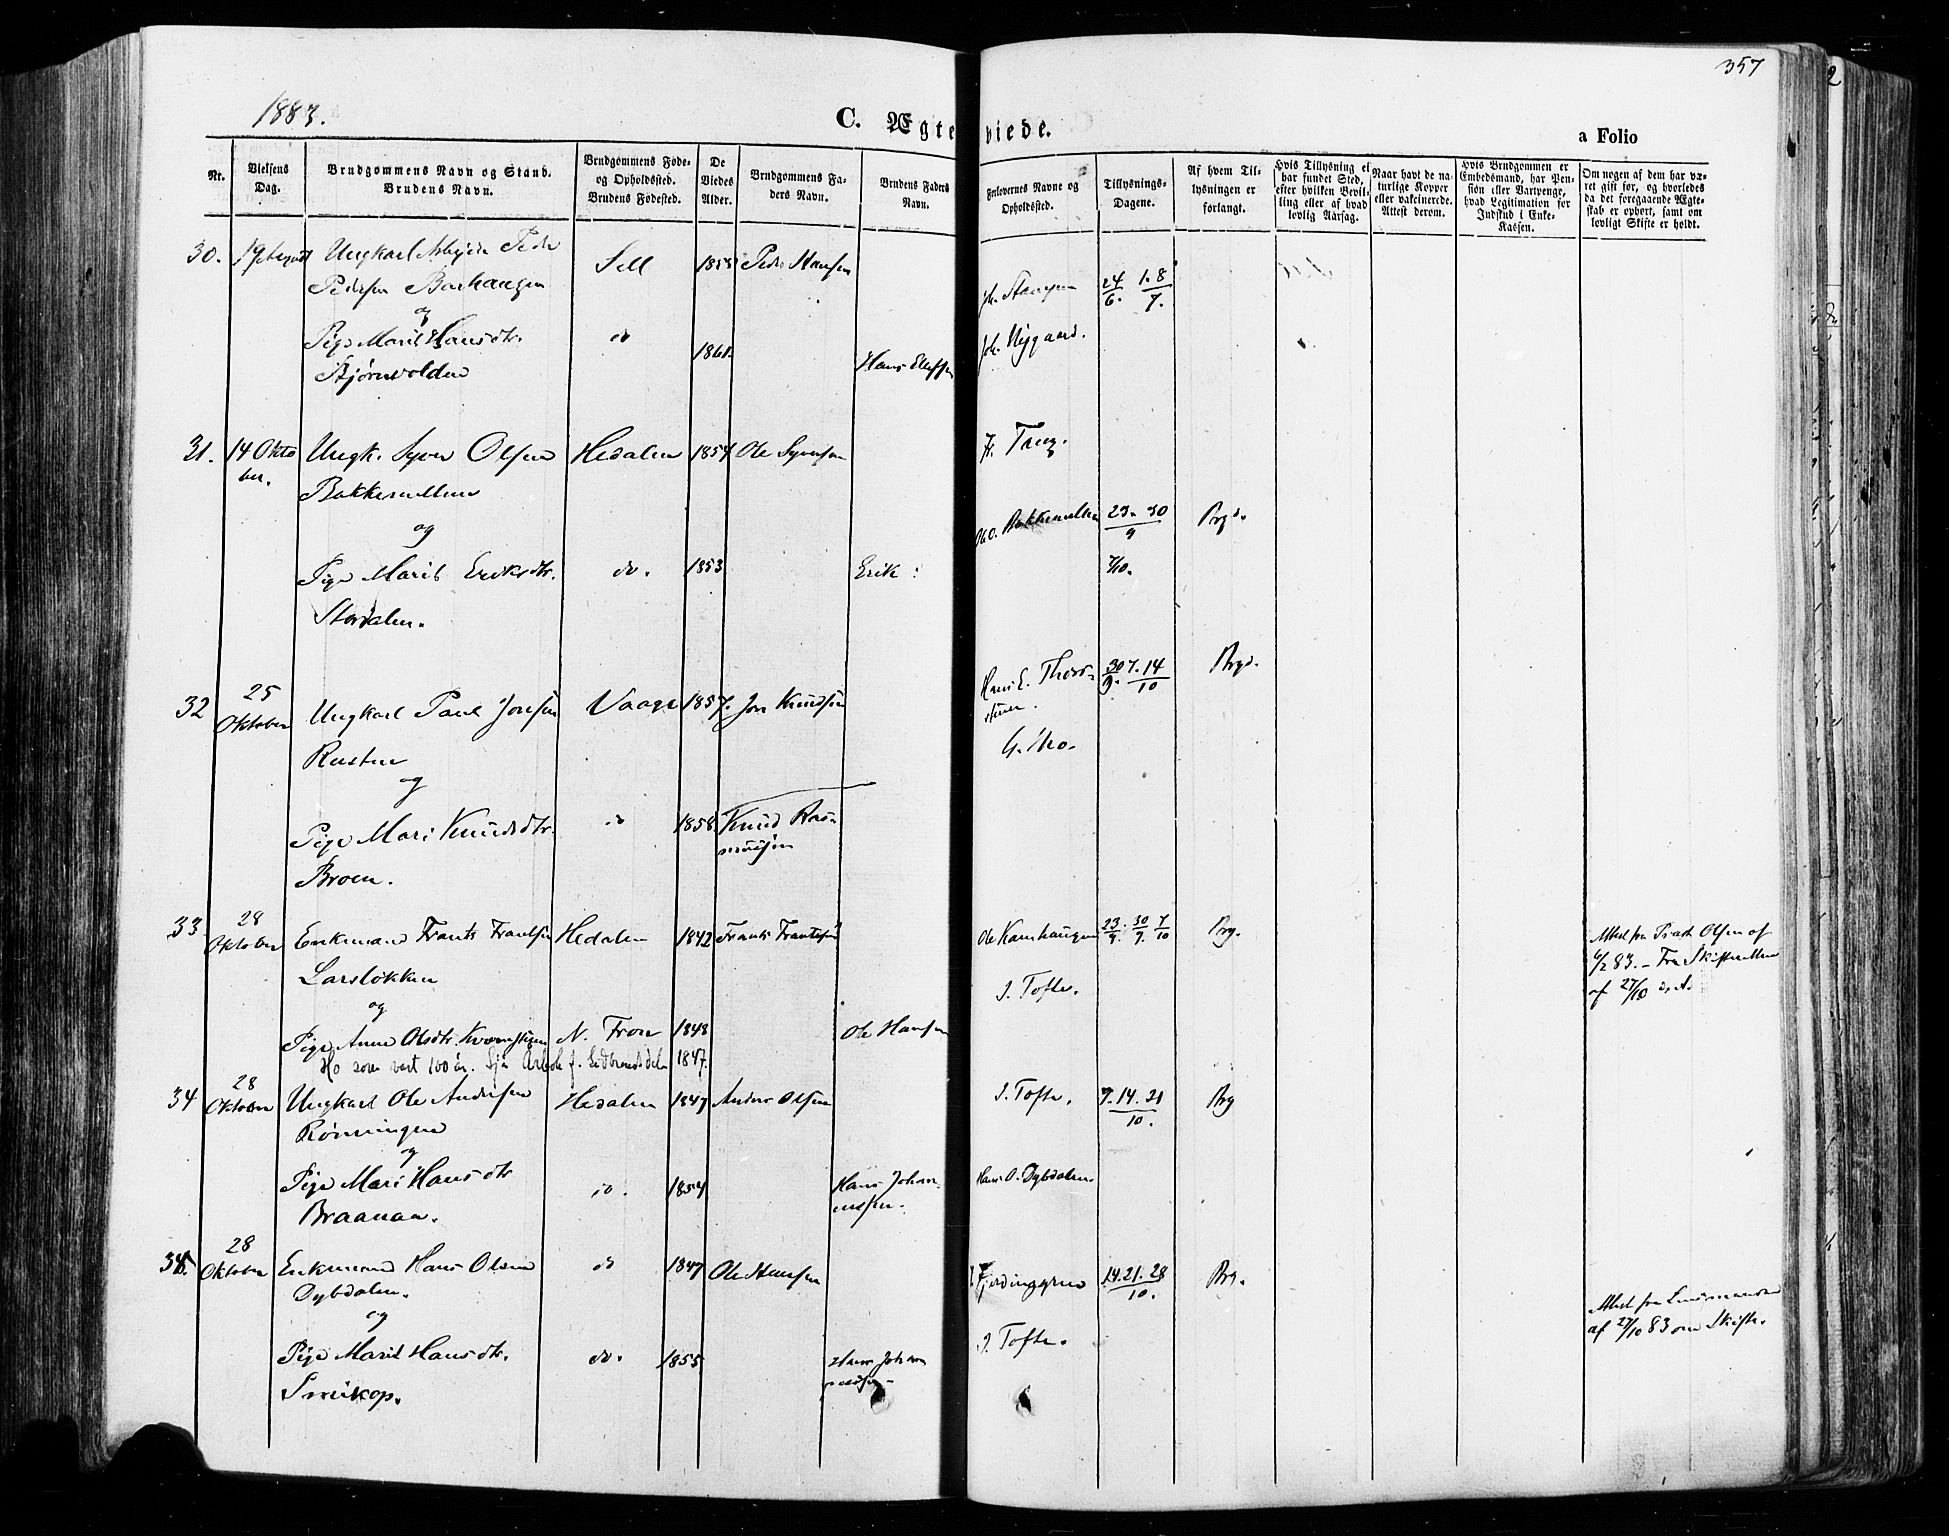 357
2
1883.
C. Ægteviede.
a Folio
Nr.
Vielsens Dag.
Brudgommens Navn og Stand.
Brudens Navn.
Brudgommens Føde- og Opholdssted.
Brudens Fødested.
De Viedes Alder.
Brudgommens Faders Navn.
Brudens Faders Navn.
Forlovernes Navne og Opholdssted.
Tillysnings-Dagene.
Af hvem Tillysningen er forlangt.
Hvis Tillysning ei har fundet Sted, efter hvilken Bevilling eller af hvad lovlig Aarsag.
Naar havt de naturlige Kopper eller vakcinerede. Attest derom.
Hvis Brudgommen er Embedsmand, har Pension eller Vartpenge, hvad Legitimation for Indskud i Enke-Kassen.
Om nogen af dem har været gift før, og hvorledes da det foregaaende Ægteskab er ophørt, samt om lovligt Skifte er holdt.
30. 19 August Ungkarl Peder Sell 1855 Peder Hansen
Pedersen Barhaugen 24/6. 1. 8/7.
og
Pige Marit Hansdtr. do 1861 Hans
Bjørnvolden Joh. Nygaard.
31. 14 Oktober. Ungk. Syver Olsen Hedalen 1854 Ole Syversen
Bakkemellem
og
Ole O. Bakkemellem 23. 30/9 Brgd.
Pige Marit Eriksdtr. do. 1853 Erik : 7/10.
Stordalen.
32 25 Oktober Ungkarl Paul Jonsen Vaage 1857. Jon Knudsen Hans E. 30/9. 7. 14/10 Brgd.
Rusten
og
G. Mo.
Pige Mari Knudsdtr. do 1858 Knud Rasmussen
Broen.
33 28 Oktober Enkemand Frants Frantsen Hedalen 1842 Frants Frantsen Ole Kamhaugen 23/9. 30/9. 7/10 Brg.
Larsløkken
og
I. Tofte.
Attest fra Olsen af
6/2 83. – Fra Skifteretten
af 27/10 d. A.
Pige Anne Olsdtr. Kvernstuen N. Fron 1848 Ole Hansen
Ho som vart 100 år. Sjå Årbok f. Gudbrandsdalen 1847.
34 28 Oktober Ungkarl Ole Andersen Hedalen 1847 Anders Olsen I. Tofte. 7. 14. 21/10. Brg
Rønningen
og
Pige Mari Hansdtr do. 1854 Hans Johannessen. Hans O. Dybdalen
Braanaa.
35. 28 Oktober Enkemand Hans Olsen do 1847 Ole Hansen Fjerdinggren 14. 21. 28/10. Brg.
Dybdalen.
og
Attest fra Lensmanden
af 27/10 83 om Skifte.
Pige Marit Hansdtr. do. 1855 Hans Johannessen I. Tofte.